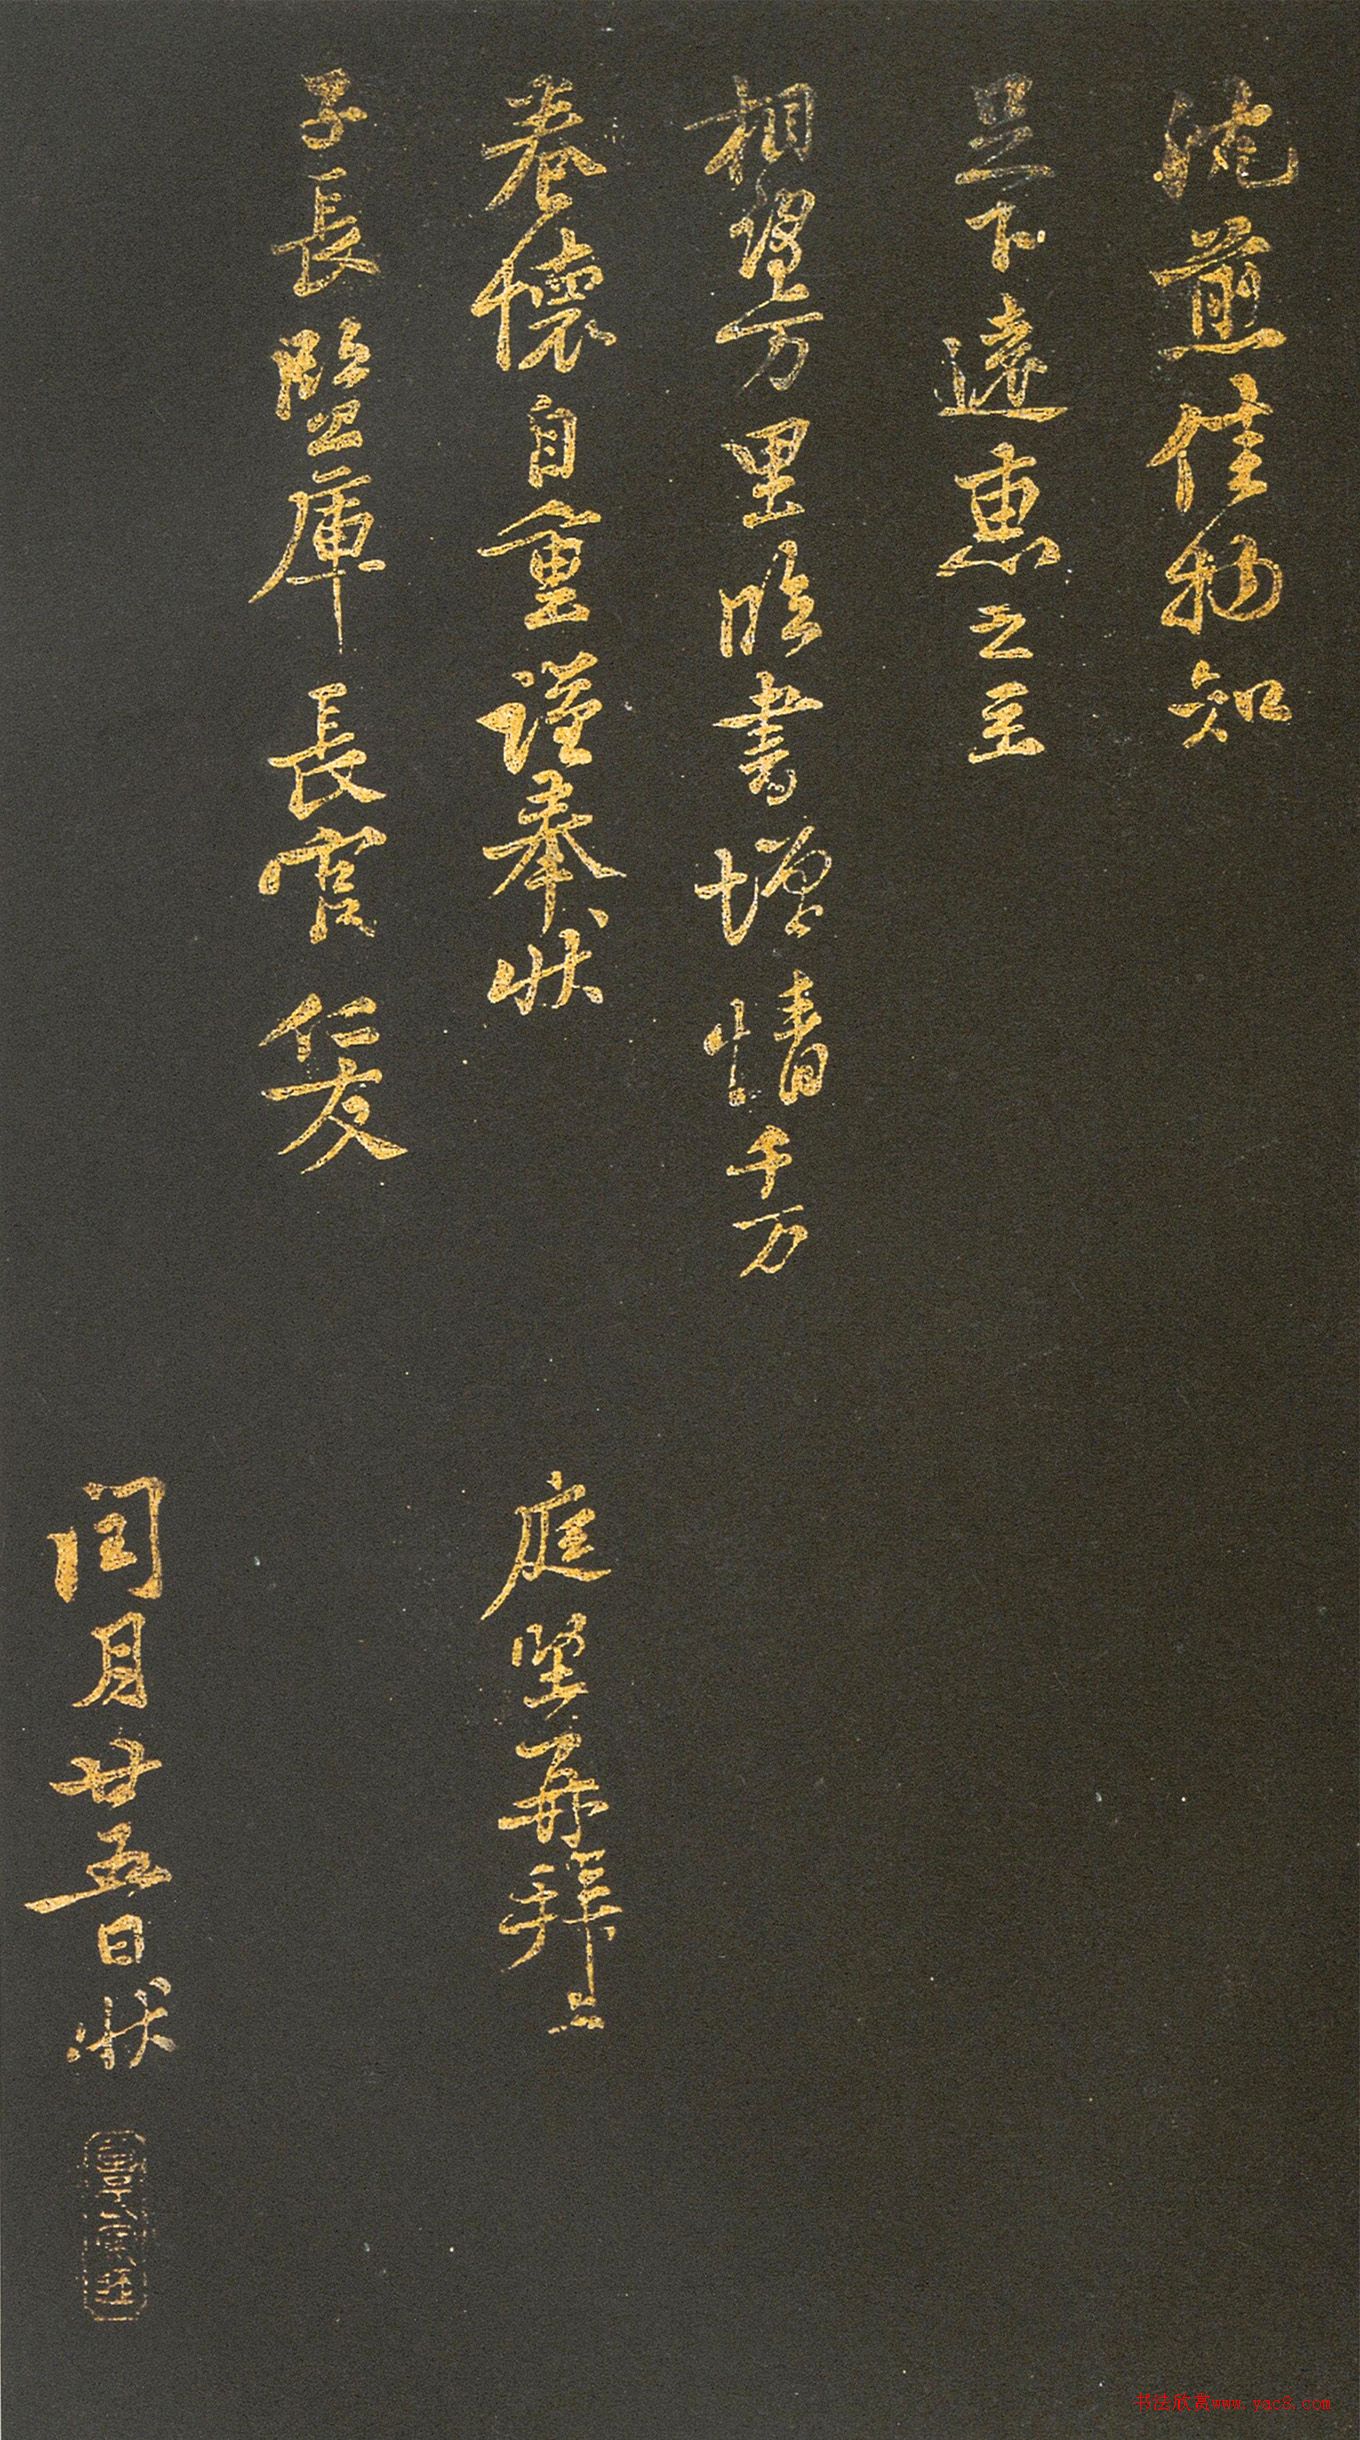 煎佳物知
足下遠惠之至
相望万里臨書增情千万
卷懷自重謹奉狀 庭堅再拜上
子長監庫長官仁友
閏月廿五日狀
书法欣赏www.yac8.com